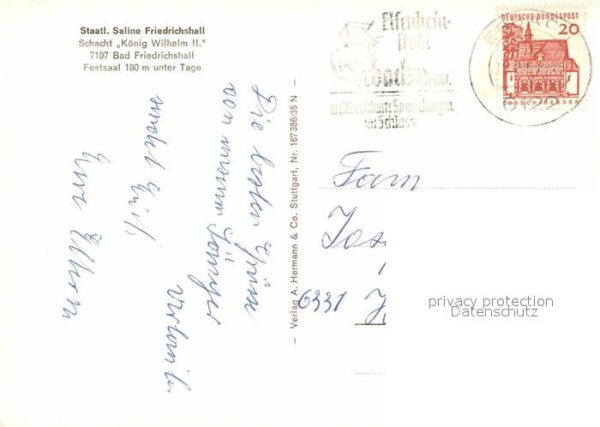 Staatl. Saline Friedrichshall
Schacht „König Wilhelm II."
7107 Bad Friedrichshall
Festsaal 180 m unter Tage
Die besten Grüße
von unserem
Eure Eltern
– Verlag A. Hermann & Co. Stuttgart, Nr. 167386/35 N –
Elfenbein-
stadt
Erbach Odenw.
weltberühmte Sammlungen
im Schloss
DEUTSCHE BUNDESPOST
20
LORSCH/HESSEN
Fam
Jos
6331
privacy protection
Datenschutz